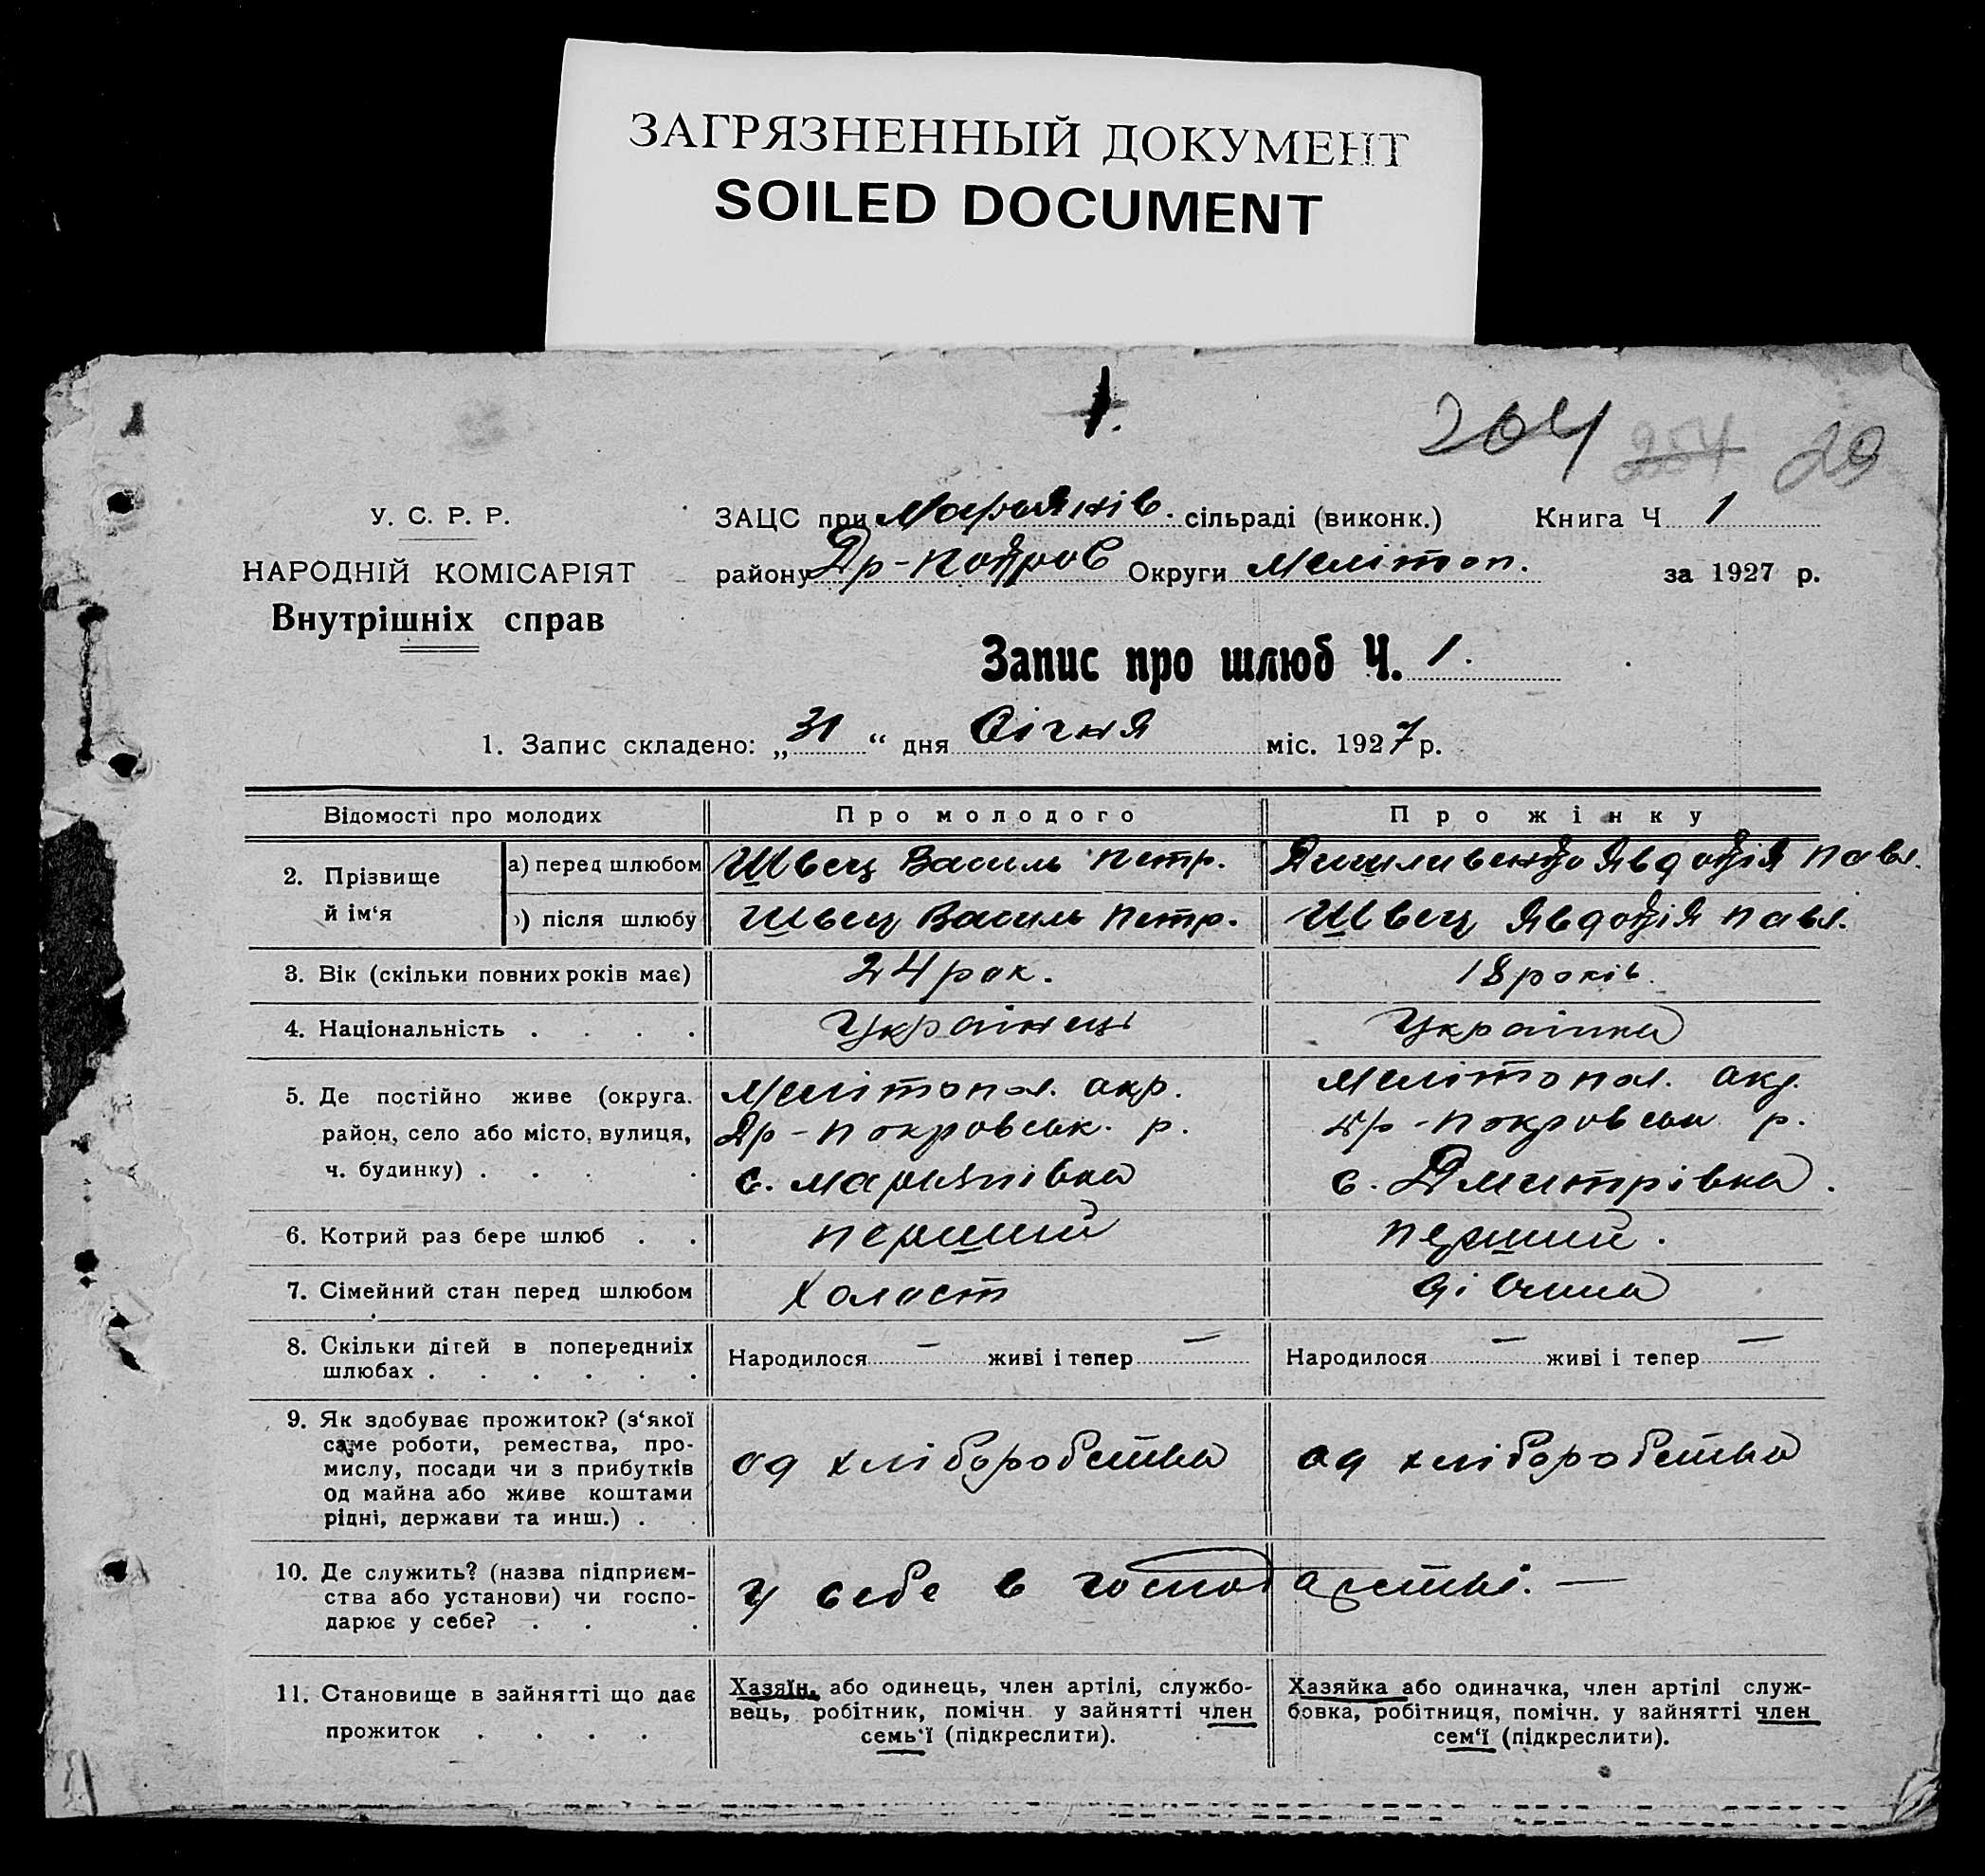 ЗАГРЯЗНЕННЫЙ ДОКУМЕНТ
SOILED DOCUMENT
1.
204 204 29
У. С. Р. Р.
НАРОДНІЙ КОМІСАРІЯТ
Внутрішніх справ
ЗАЦС при Мар'янів. сільраді (виконк.) Книга Ч 1
району Др-Покров Округи Мелітоп. за 1927 р.
Запис про шлюб Ч. 1.
1. Запис складено: „31“ дня Січня міс. 1927 р.
Відомості про молодих Про молодого Про жінку
2. Прізвище й ім‘я
а) перед шлюбом Швец Василь Петр. Явдокія Павл.
) після шлюбу Швец Василь Петр. Швец Явдокія Павл.
3. Вік (скільки повних років має) 24 рок. 18 років.
4. Національність . . . . Українець Українка
5. Де постійно живе (округа, район, село або місто, вулиця, ч. будинку) . . . .
Мелітопол. окр.
Др-Покровськ. р.
с. Мар'янівка
Мелітопол. окр.
Др-Покровськ р.
с. Дмитрівка.
6. Котрий раз бере шлюб . . перший перший.
7. Сімейний стан перед шлюбом холост дівчина
8. Скільки дітей в попередніх шлюбах . . . . . . Народилося — живі і тепер — Народилося — живі і тепер —
9. Як здобуває прожиток? (з‘якої
саме роботи, ремества, про-
мислу, посади чи з прибутків
од майна або живе коштами
рідні, держави та инш.) . .
од хліборобства од хліборобства
10. Де служить? (назва підприєм-
ства або установи) чи госпо-
дарює у себе? . . .
у себе в господарстві. —
11. Становище в зайнятті що дає
прожиток . . . .
Хазяїн, або одинець, член артілі, службо-
вець, робітник, помічн. у зайнятті член
семь‘ї (підкреслити).
Хазяйка або одиначка, член артілі служ-
бовка, робітниця, помічн. у зайнятті член
сем‘ї (підкреслити).